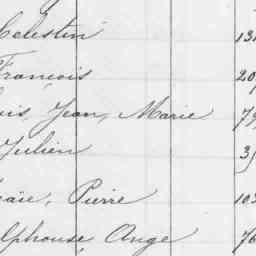 Celestin 131
François 20
uis, Jean, Marie 79
Julien 35
aïe, Pierre 103
lphouse, Ange 76